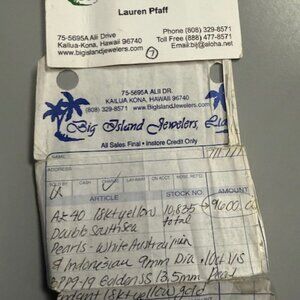 Lauren Pfaff
75-5695A Alii Drive
Kailua-Kona, Hawaii 96740
www.bigislandjewelers.com
Phone (808) 329-8571
Toll Free (888) 477-8571
Email:bij@aloha.net
7
75-5695A ALII DR.
KAILUA KONA, HAWAII 96740
(808) 329-8571 www.bigislandjewelers.com
Big Island Jewelers, Ltd.
All Sales Final • Instore Credit Only
NAME
ADDRESS
SOLD BY CASH LAY-AWAY ON ACC. MDSE. RETD.
ARTICLE STOCK NO. AMOUNT
18kt yellow 10,635 9600.00
South Sea total
Pearls - White Australian
& Indonesian 9mm Dia .10ct VS
Golden SS 13.5mm Pearl
Pendant 18kt yellow gold